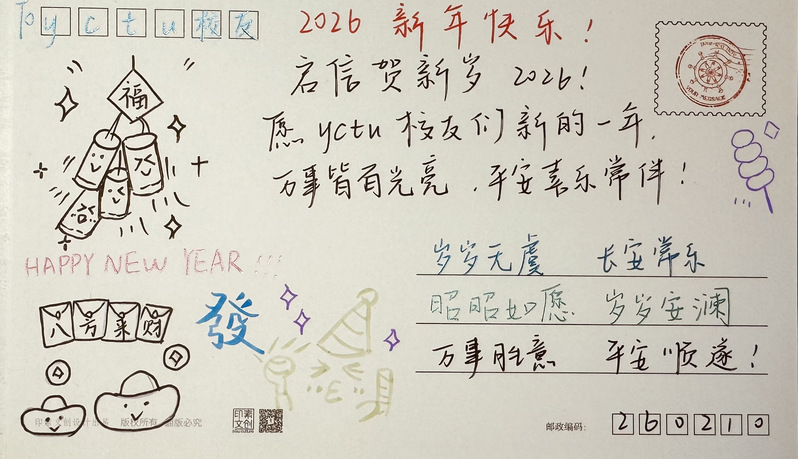 To yctu校友
2026 新年快乐！
启信贺新岁 2026！
愿 yctu 校友们新的一年，
万事皆有光亮，平安喜乐常伴！
福
HAPPY NEW YEAR !!!
岁岁无虞 长安常乐
昭昭如愿 岁岁安澜
万事胜意 平安顺遂！
八方来财
發
印素文创
版权所有
版必究
邮政编码：
260210